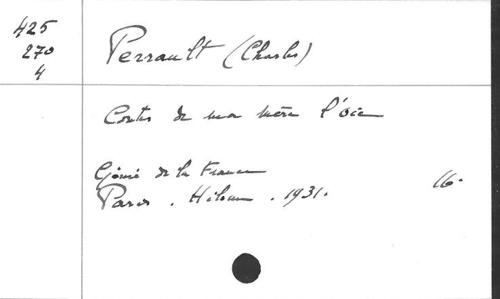 425
270
4
Perrault (Charles)
Contes de ma mère l'Oie
Génie de la France
Paris . Hilsum . 1931.
16.